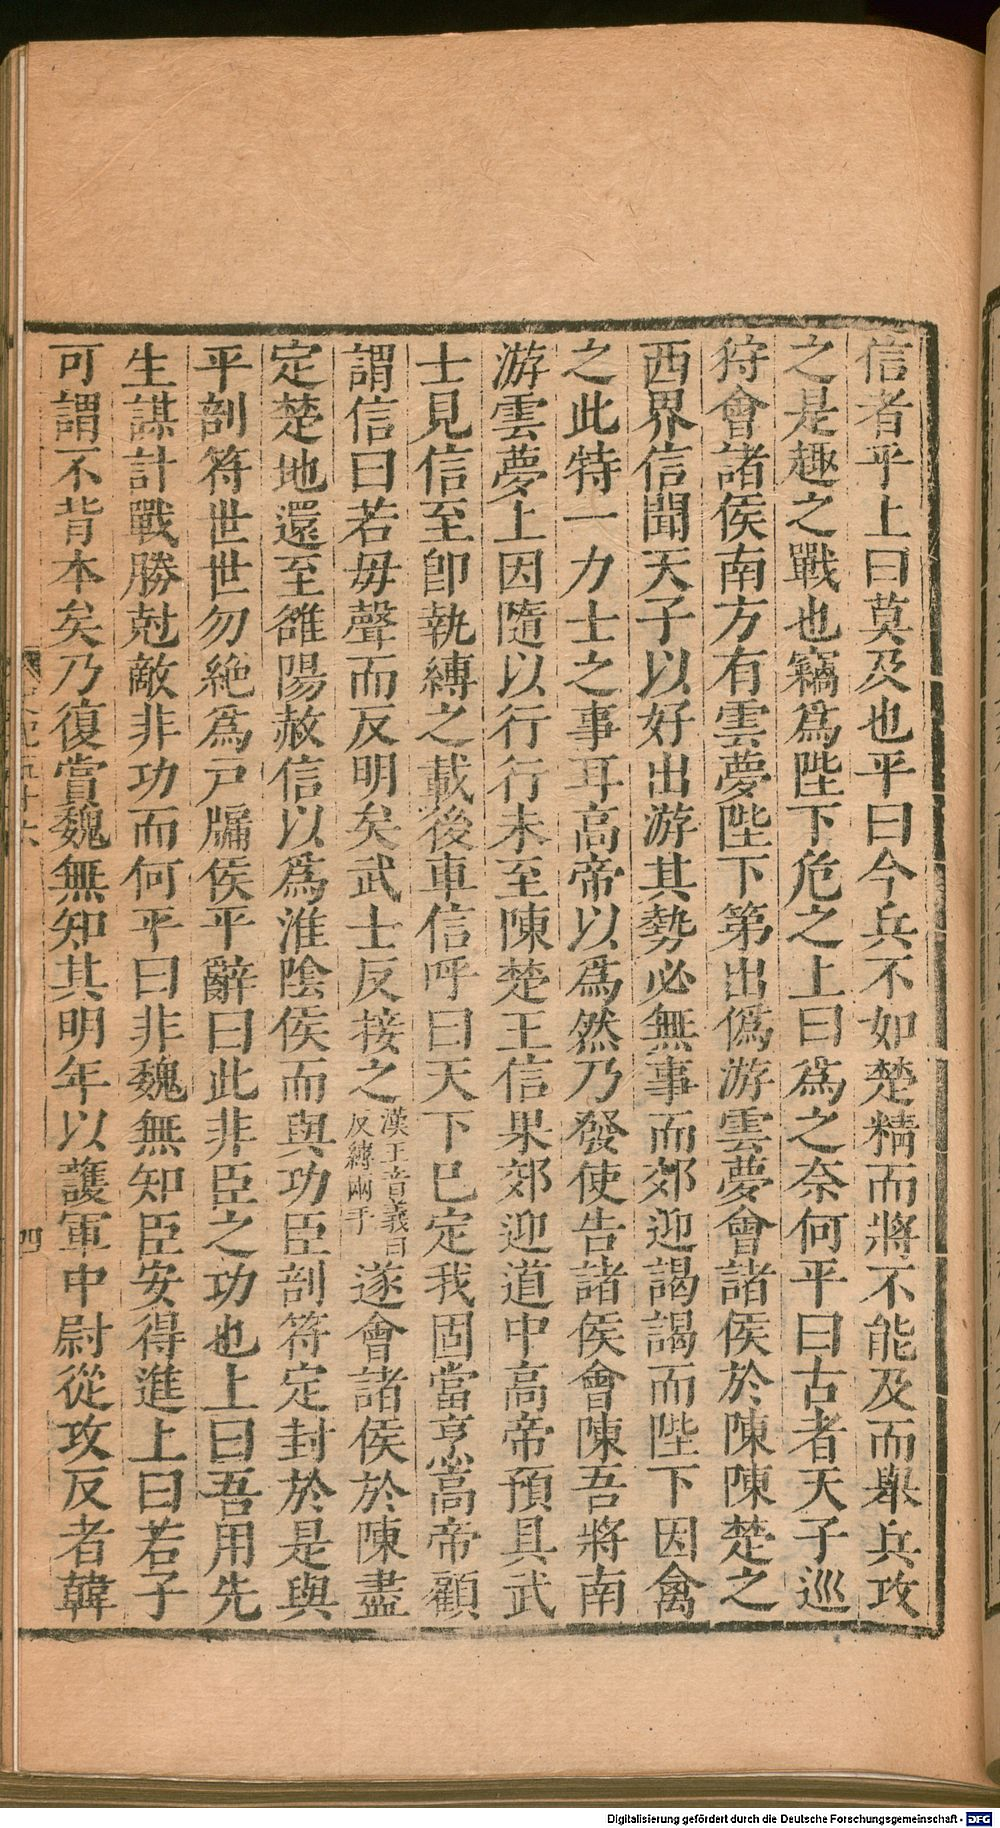 信者乎上曰莫及也平曰今兵不如楚精而將不能及而舉兵攻
之是趣之戰也竊爲陛下危之上曰爲之奈何平曰古者天子巡
狩會諸侯南方有雲夢陛下第出僞游雲夢會諸侯於陳陳楚之
西界信聞天子以好出游其勢必無事而郊迎謁謁而陛下因禽
之此特一力士之事耳高帝以爲然乃發使告諸侯會陳吾將南
游雲夢上因隨以行行未至陳楚王信果郊迎道中高帝預具武
士見信至卽執縛之載後車信呼曰天下已定我固當烹高帝顧
謂信曰若毋聲而反明矣武士反接之漢王音義曰反縛兩手遂會諸侯於陳盡
定楚地還至雒陽赦信以爲淮陰侯而與功臣剖符定封於是與
平剖符世世勿絶爲戸牖侯平辭曰此非臣之功也上曰吾用先
生謀計戰勝尅敵非功而何平曰非魏無知臣安得進上曰若子
可謂不背本矣乃復賞魏無知其明年以護軍中尉從攻反者韓
四
Digitalisierung gefördert durch die Deutsche Forschungsgemeinschaft - DFG